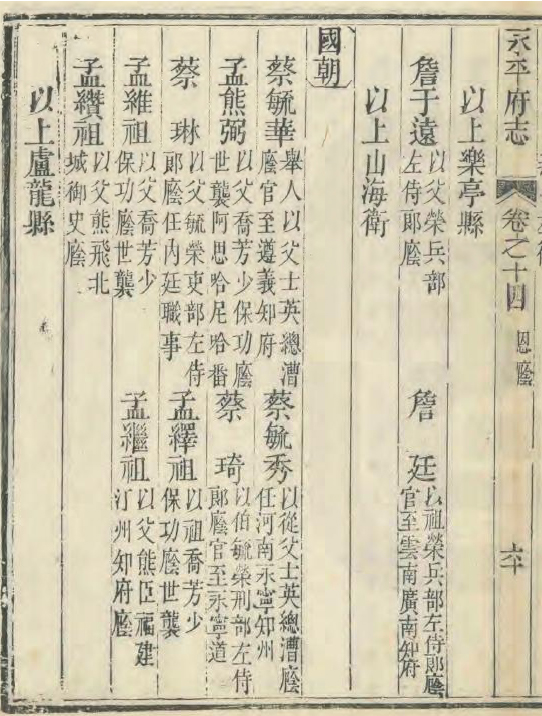 永平府志
卷之十四
恩廕
六十
以上樂亭縣
詹于遠
以父榮兵部
左侍郎廕
詹廷
以祖榮兵部左侍郎廕
官至雲南廣南知府
以上山海衛
國朝
蔡毓華
舉人以父士英總漕
廕官至遵義知府
蔡毓秀
以從父士英總漕廕
任河南永寧知州
孟熊弼
以父喬芳少保功廕
世襲阿思哈尼哈番
蔡琦
以伯毓榮刑部左侍
郎廕官至永寧道
蔡琳
以父毓榮吏部左侍
郎廕任內廷職事
孟繹祖
以祖喬芳少
保功廕世襲
孟維祖
以父喬芳少
保功廕世襲
孟繼祖
以父熊臣福建
汀州知府廕
孟纘祖
以父熊飛北
城御史廕
以上盧龍縣